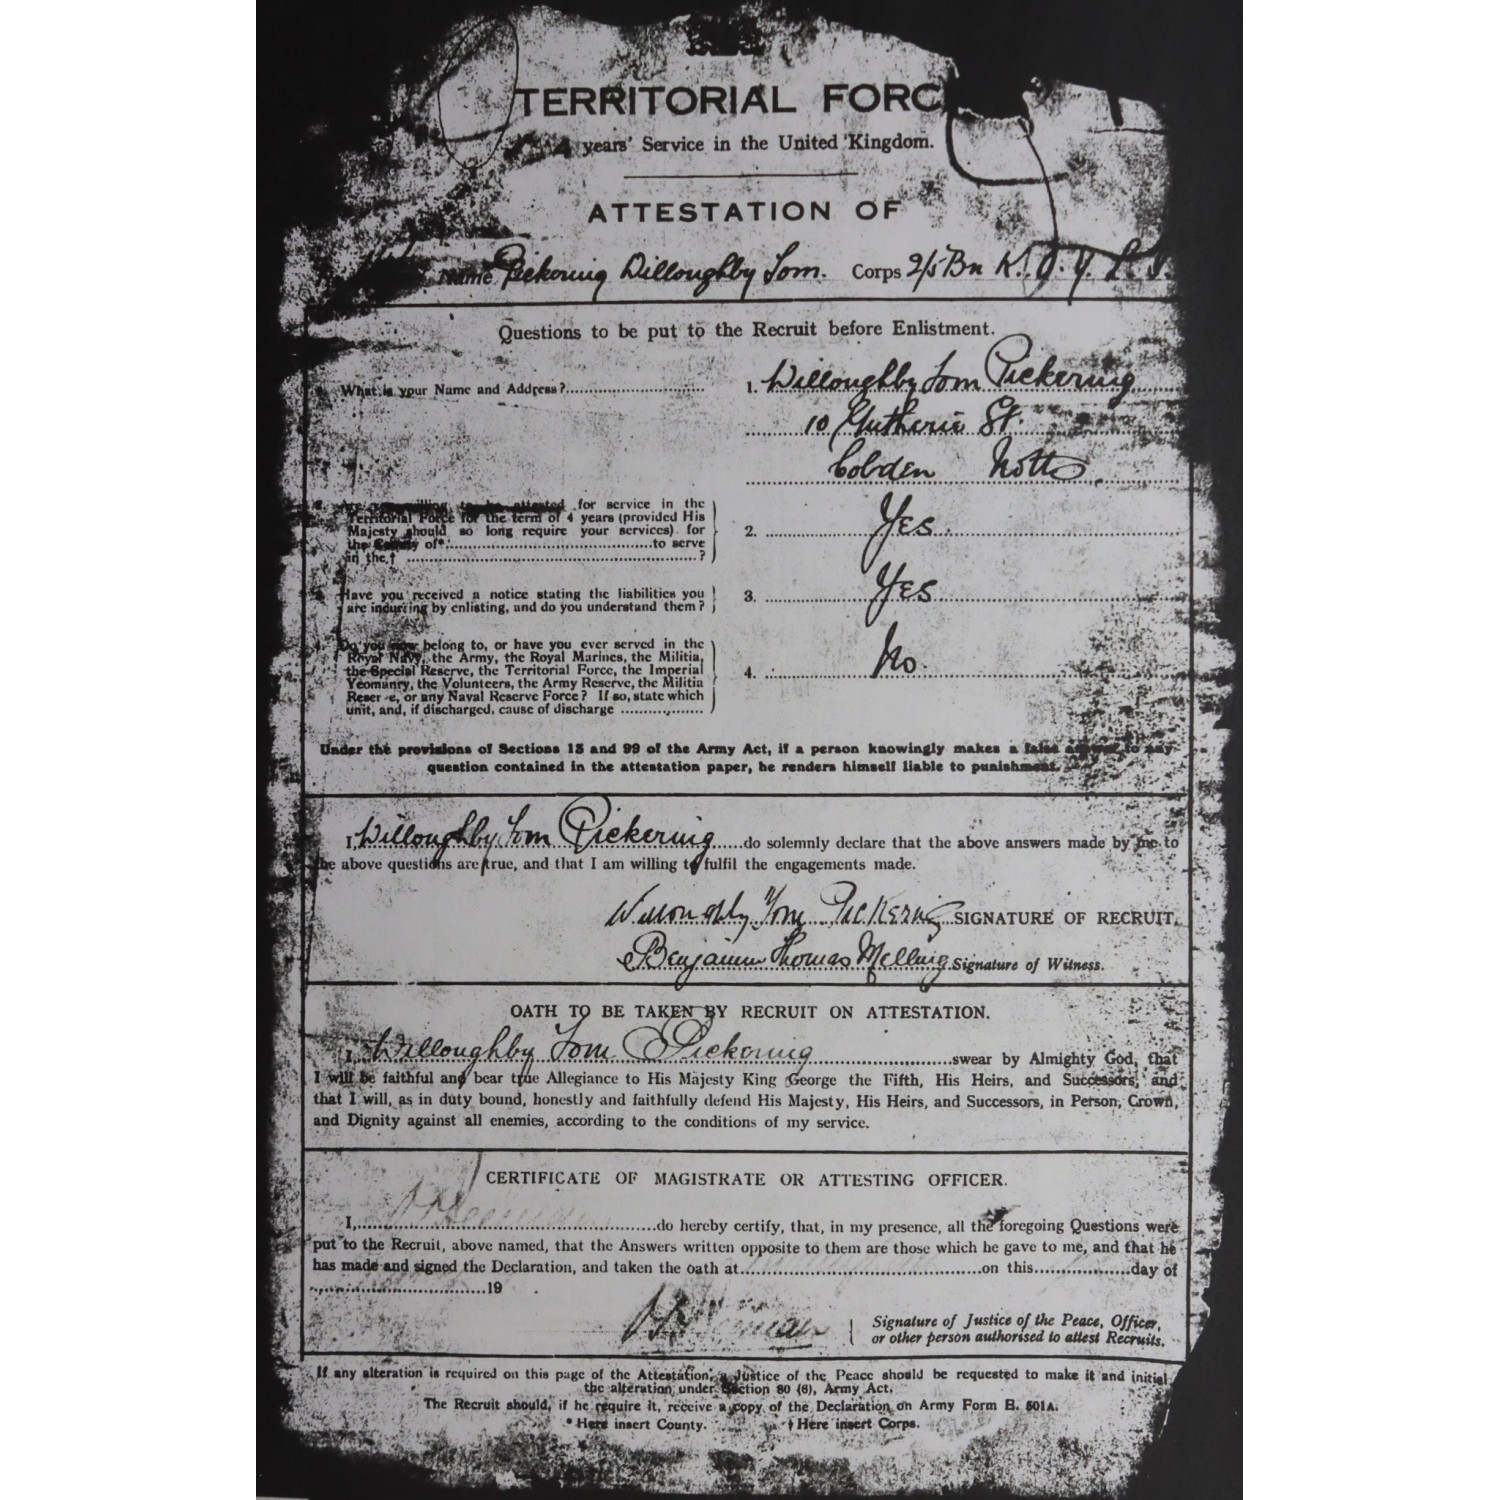 TERRITORIAL FORC
4 years' Service in the United Kingdom.
ATTESTATION OF
Name Pickering Willoughby Tom. Corps 2/5 Bn K.O.Y.L.I.
Questions to be put to the Recruit before Enlistment.
What is your Name and Address? 1. Willoughby Tom Pickering
10 Gutherie St.
Cobden Notts
2. Are you willing to be attested for service in the
Territorial Force for the term of 4 years (provided His
Majesty should so long require your services) for
the County of* to serve
in the † ?
2. Yes.
3. Have you received a notice stating the liabilities you
are incurring by enlisting, and do you understand them?
3. Yes
4. Do you now belong to, or have you ever served in the
Royal Navy, the Army, the Royal Marines, the Militia,
the Special Reserve, the Territorial Force, the Imperial
Yeomanry, the Volunteers, the Army Reserve, the Militia
Reserve, or any Naval Reserve Force? If so, state which
unit, and, if discharged, cause of discharge
4. No.
Under the provisions of Sections 13 and 99 of the Army Act, if a person knowingly makes a false answer to any
question contained in the attestation paper, he renders himself liable to punishment.
I, Willoughby Tom Pickering do solemnly declare that the above answers made by me to
the above questions are true, and that I am willing to fulfil the engagements made.
Willoughby Tom Pickering SIGNATURE OF RECRUIT.
Benjamin Thomas Melling Signature of Witness.
OATH TO BE TAKEN BY RECRUIT ON ATTESTATION.
I, Willoughby Tom Pickering swear by Almighty God, that
I will be faithful and bear true Allegiance to His Majesty King George the Fifth, His Heirs, and Successors, and
that I will, as in duty bound, honestly and faithfully defend His Majesty, His Heirs, and Successors, in Person, Crown,
and Dignity against all enemies, according to the conditions of my service.
CERTIFICATE OF MAGISTRATE OR ATTESTING OFFICER.
I, do hereby certify, that, in my presence, all the foregoing Questions were
put to the Recruit, above named, that the Answers written opposite to them are those which he gave to me, and that he
has made and signed the Declaration, and taken the oath at on this day of
19 .
Signature of Justice of the Peace, Officer,
or other person authorised to attest Recruits.
If any alteration is required on this page of the Attestation, a Justice of the Peace should be requested to make it and initial
the alteration under Section 80 (6), Army Act.
The Recruit should, if he require it, receive a copy of the Declaration on Army Form E. 501A.
* Here insert County. † Here insert Corps.